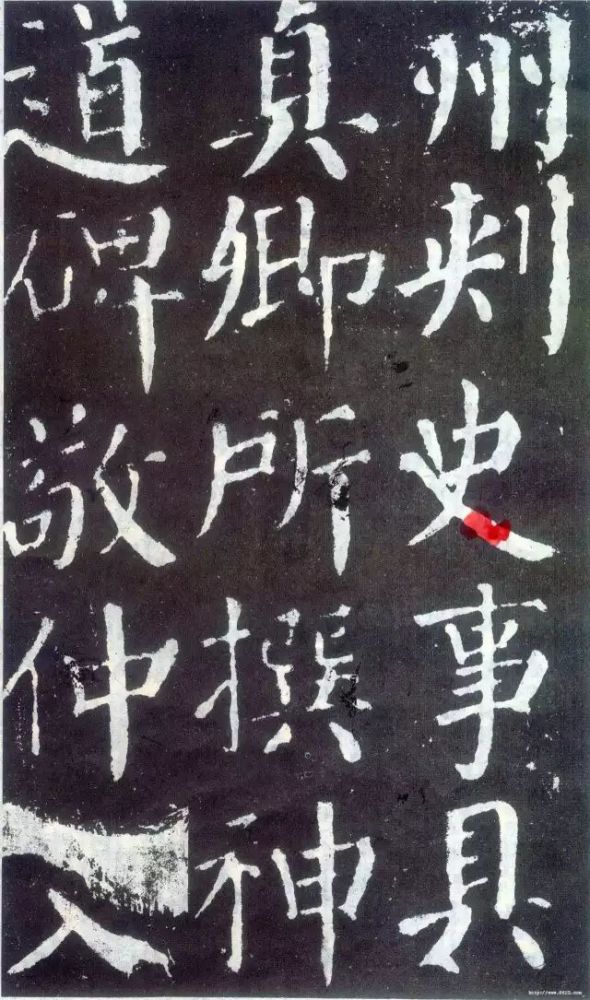 州刾史事具
真卿所撰神
道碑敬仲